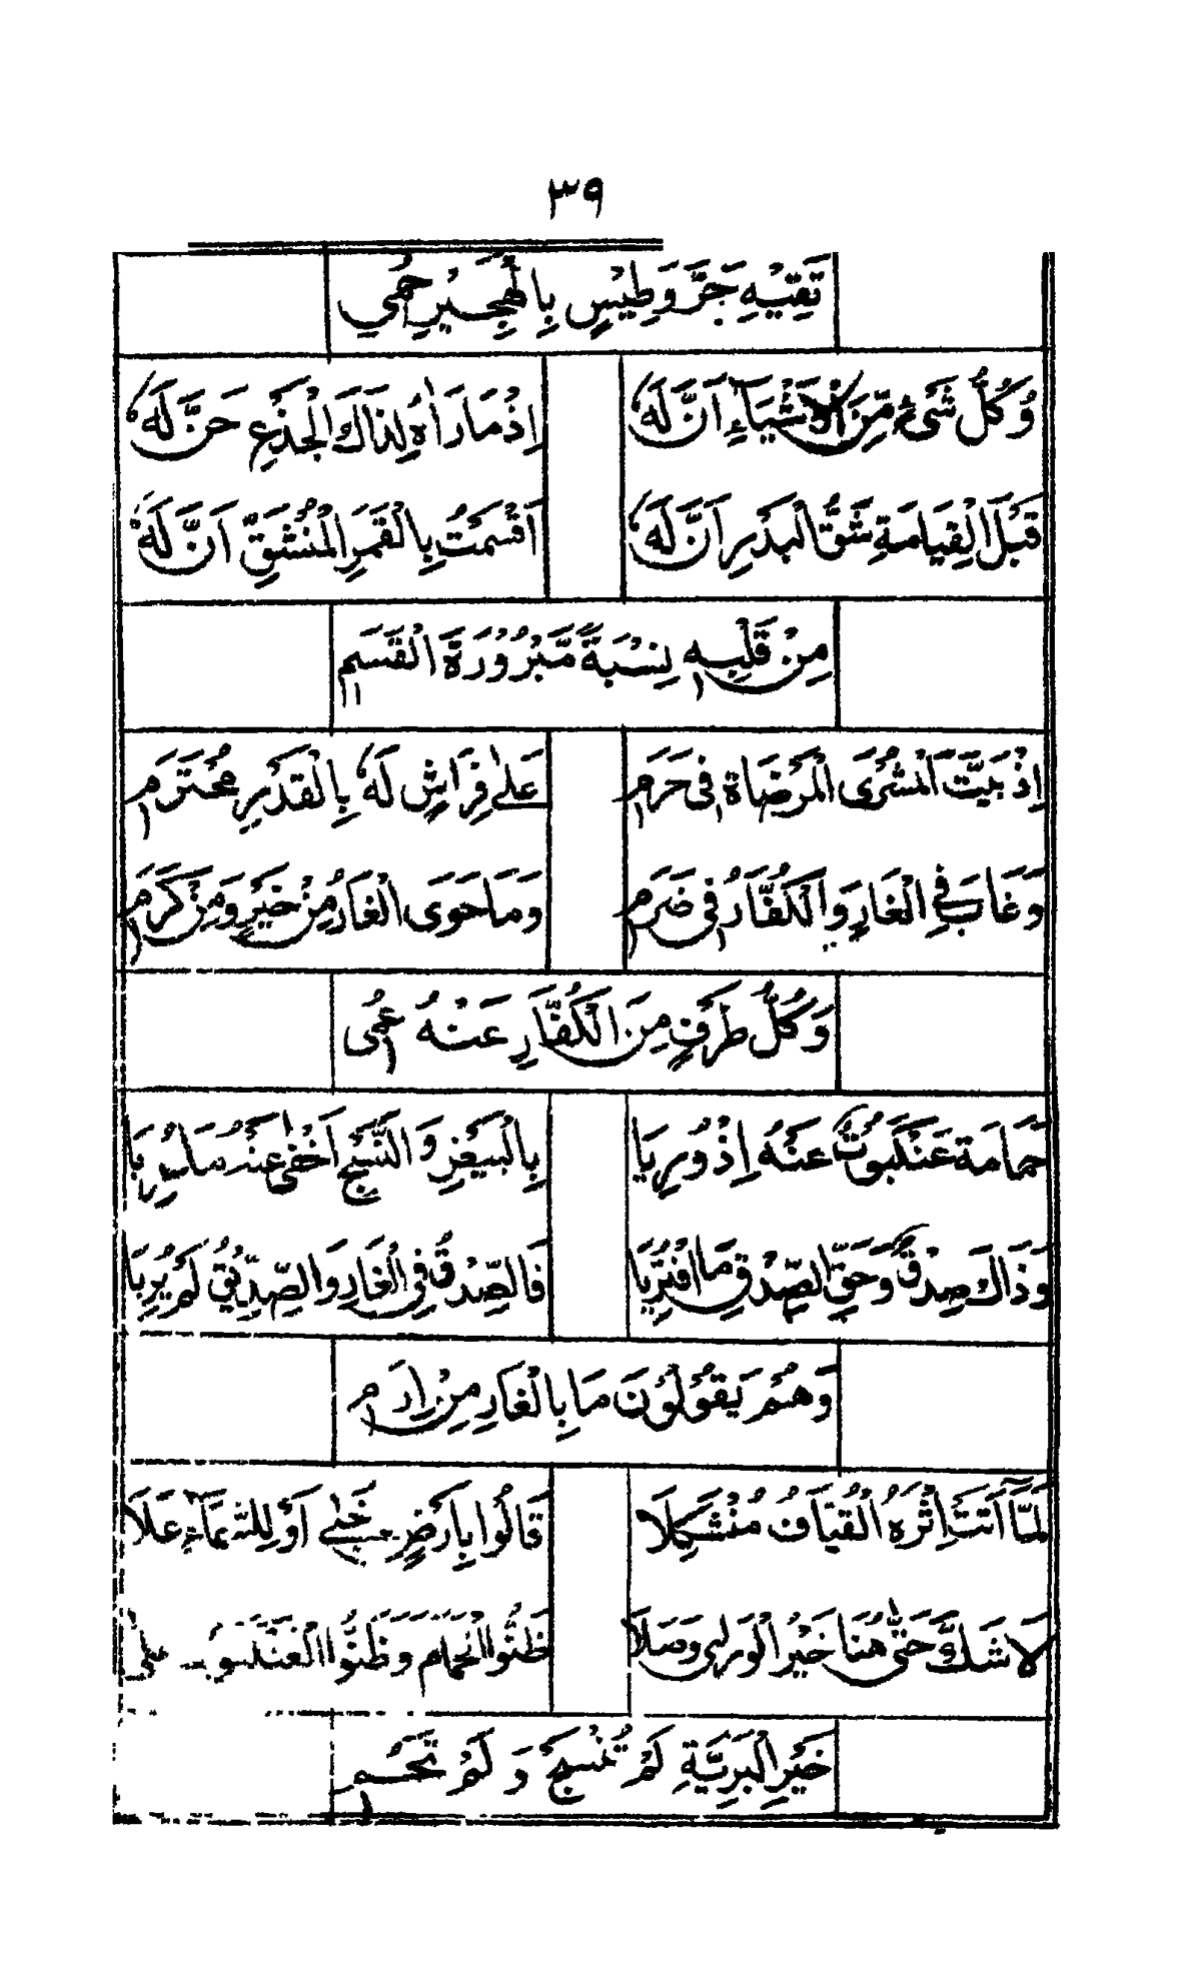 ٣٩
تَقِيْهِ حَرَّ وَطِيْسٍ بِالْهَجِيْرِ حُمِي
وَكُلُّ شَىْءٍ مِّنَ الْاَشْيَآءِ اَنَّ لَهٗ اِذْ مَا رَاٰهُ لِذَاكَ الْجِذْعِ حَنَّ لَهٗ
قَبْلَ الْقِيَامَةِ شَقُّ الْبَدْرِ اَنَّ لَهٗ اَقْسَمْتُ بِالْقَمَرِ الْمُنْشَقِّ اَنَّ لَهٗ
مِنْ قَلْبِهٖ نِسْبَةً مَّبْرُوْرَةَ الْقَسَمِ
اِذْ بَيَّتَ الْمُشْرَى الْمَرْضَاةَ فِى حَرَمٍ عَلٰى فِرَاشٍ لَهٗ بِالْقَدْرِ مُحْتَرَمٍ
وَغَابَ فِى الْغَارِ وَالْكُفَّارُ فِى ضَرَمٍ وَمَا حَوَى الْغَارُ مِنْ خَيْرٍ وَمِنْ كَرَمٍ
وَكُلُّ طَرْفٍ مِنَ الْكُفَّارِ عَنْهُ عَمِى
حَمَامَةٌ عَنْكَبُوْتٌ عَنْهُ اِذْ وُرِيَا بِالْبَيْضِ وَالنَّسْجِ اَخْفٰى عَنْهُ
وَذَاكَ صِدْقٌ وَحَقِّ الصِّدْقِ مَا افْتُرِيَا فَالصِّدْقُ فِى الْغَارِ وَالصِّدِّيْقُ لَمْ يُرِيَا
وَهُمْ يَقُوْلُوْنَ مَا بِالْغَارِ مِنْ اَرِمٍ
لَمَّا اَتَتْ اِثْرَهُ الْقُيَّافُ مُنْشَكِلًا قَالُوْا بِاَرْضٍ اَوْ لِلسَّمَآءِ عَلَا
لَا شَكَّ حَتّٰى هُنَا خَيْرُ الْوَرٰى وَصَلَا ظَنُّوا الْحَمَامَ وَظَنُّوا الْعَنْكَبُوْتَ عَلٰى
خَيْرِ الْبَرِيَّةِ لَمْ تَنْسِجْ وَ لَمْ تَحُمِ